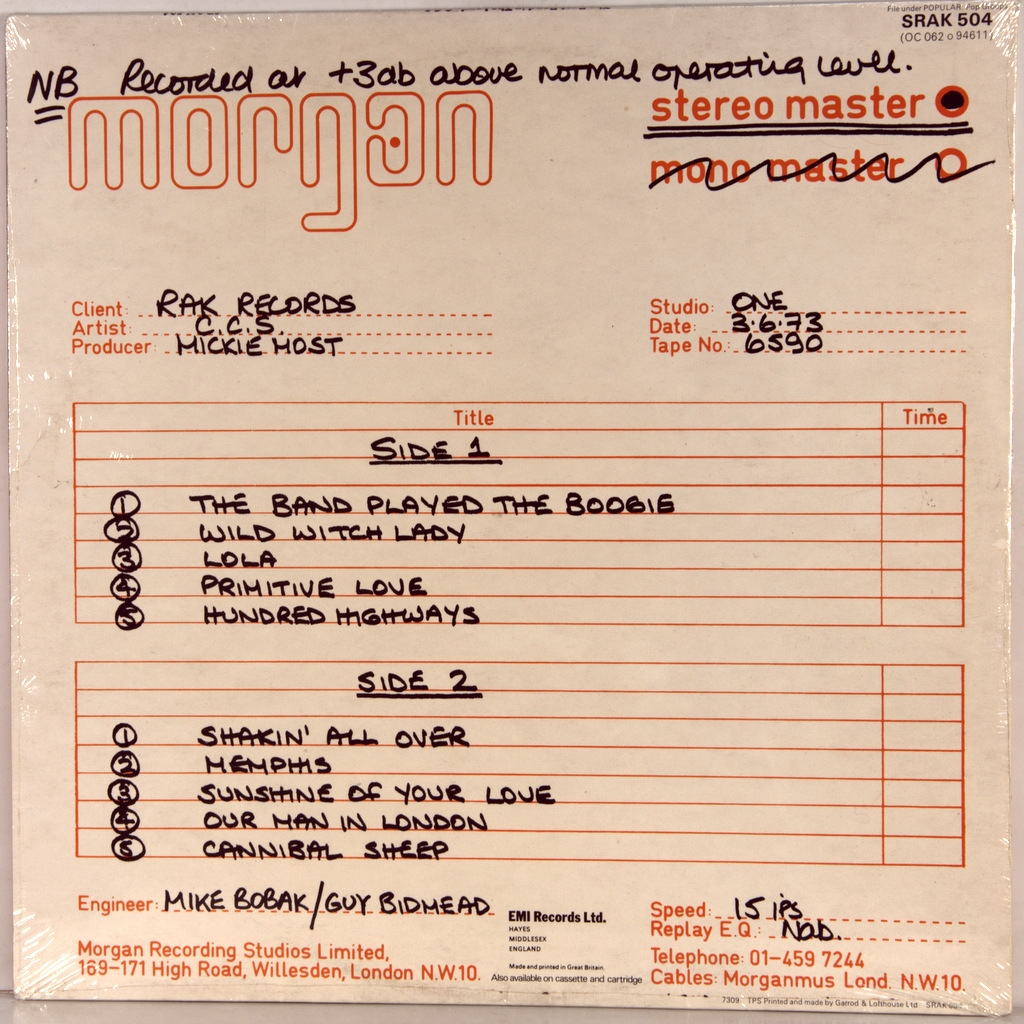 File under POPULAR: Pop Groups
SRAK 504
(OC 062 o 94611)
NB Recorded at +3db above normal operating level.
morgan
stereo master
mono master
Client: RAK RECORDS
Artist: C.C.S.
Producer: MICKIE MOST
Studio: ONE
Date: 3·6·73
Tape No.: 6590
Title Time
SIDE 1
1 THE BAND PLAYED THE BOOGIE
2 WILD WITCH LADY
3 LOLA
4 PRIMITIVE LOVE
5 HUNDRED HIGHWAYS
SIDE 2
1 SHAKIN' ALL OVER
2 MEMPHIS
3 SUNSHINE OF YOUR LOVE
4 OUR MAN IN LONDON
5 CANNIBAL SHEEP
Engineer: MIKE BOBAK/GUY BIDMEAD
Morgan Recording Studios Limited,
169-171 High Road, Willesden, London N.W.10.
EMI Records Ltd.
HAYES
MIDDLESEX
ENGLAND
Made and printed in Great Britain.
Also available on cassette and cartridge
Speed: 15 IPS
Replay E.Q.: Nab.
Telephone: 01-459 7244
Cables: Morganmus Lond. N.W.10.
7309 TPS Printed and made by Garrod & Lofthouse Ltd SRAK 504